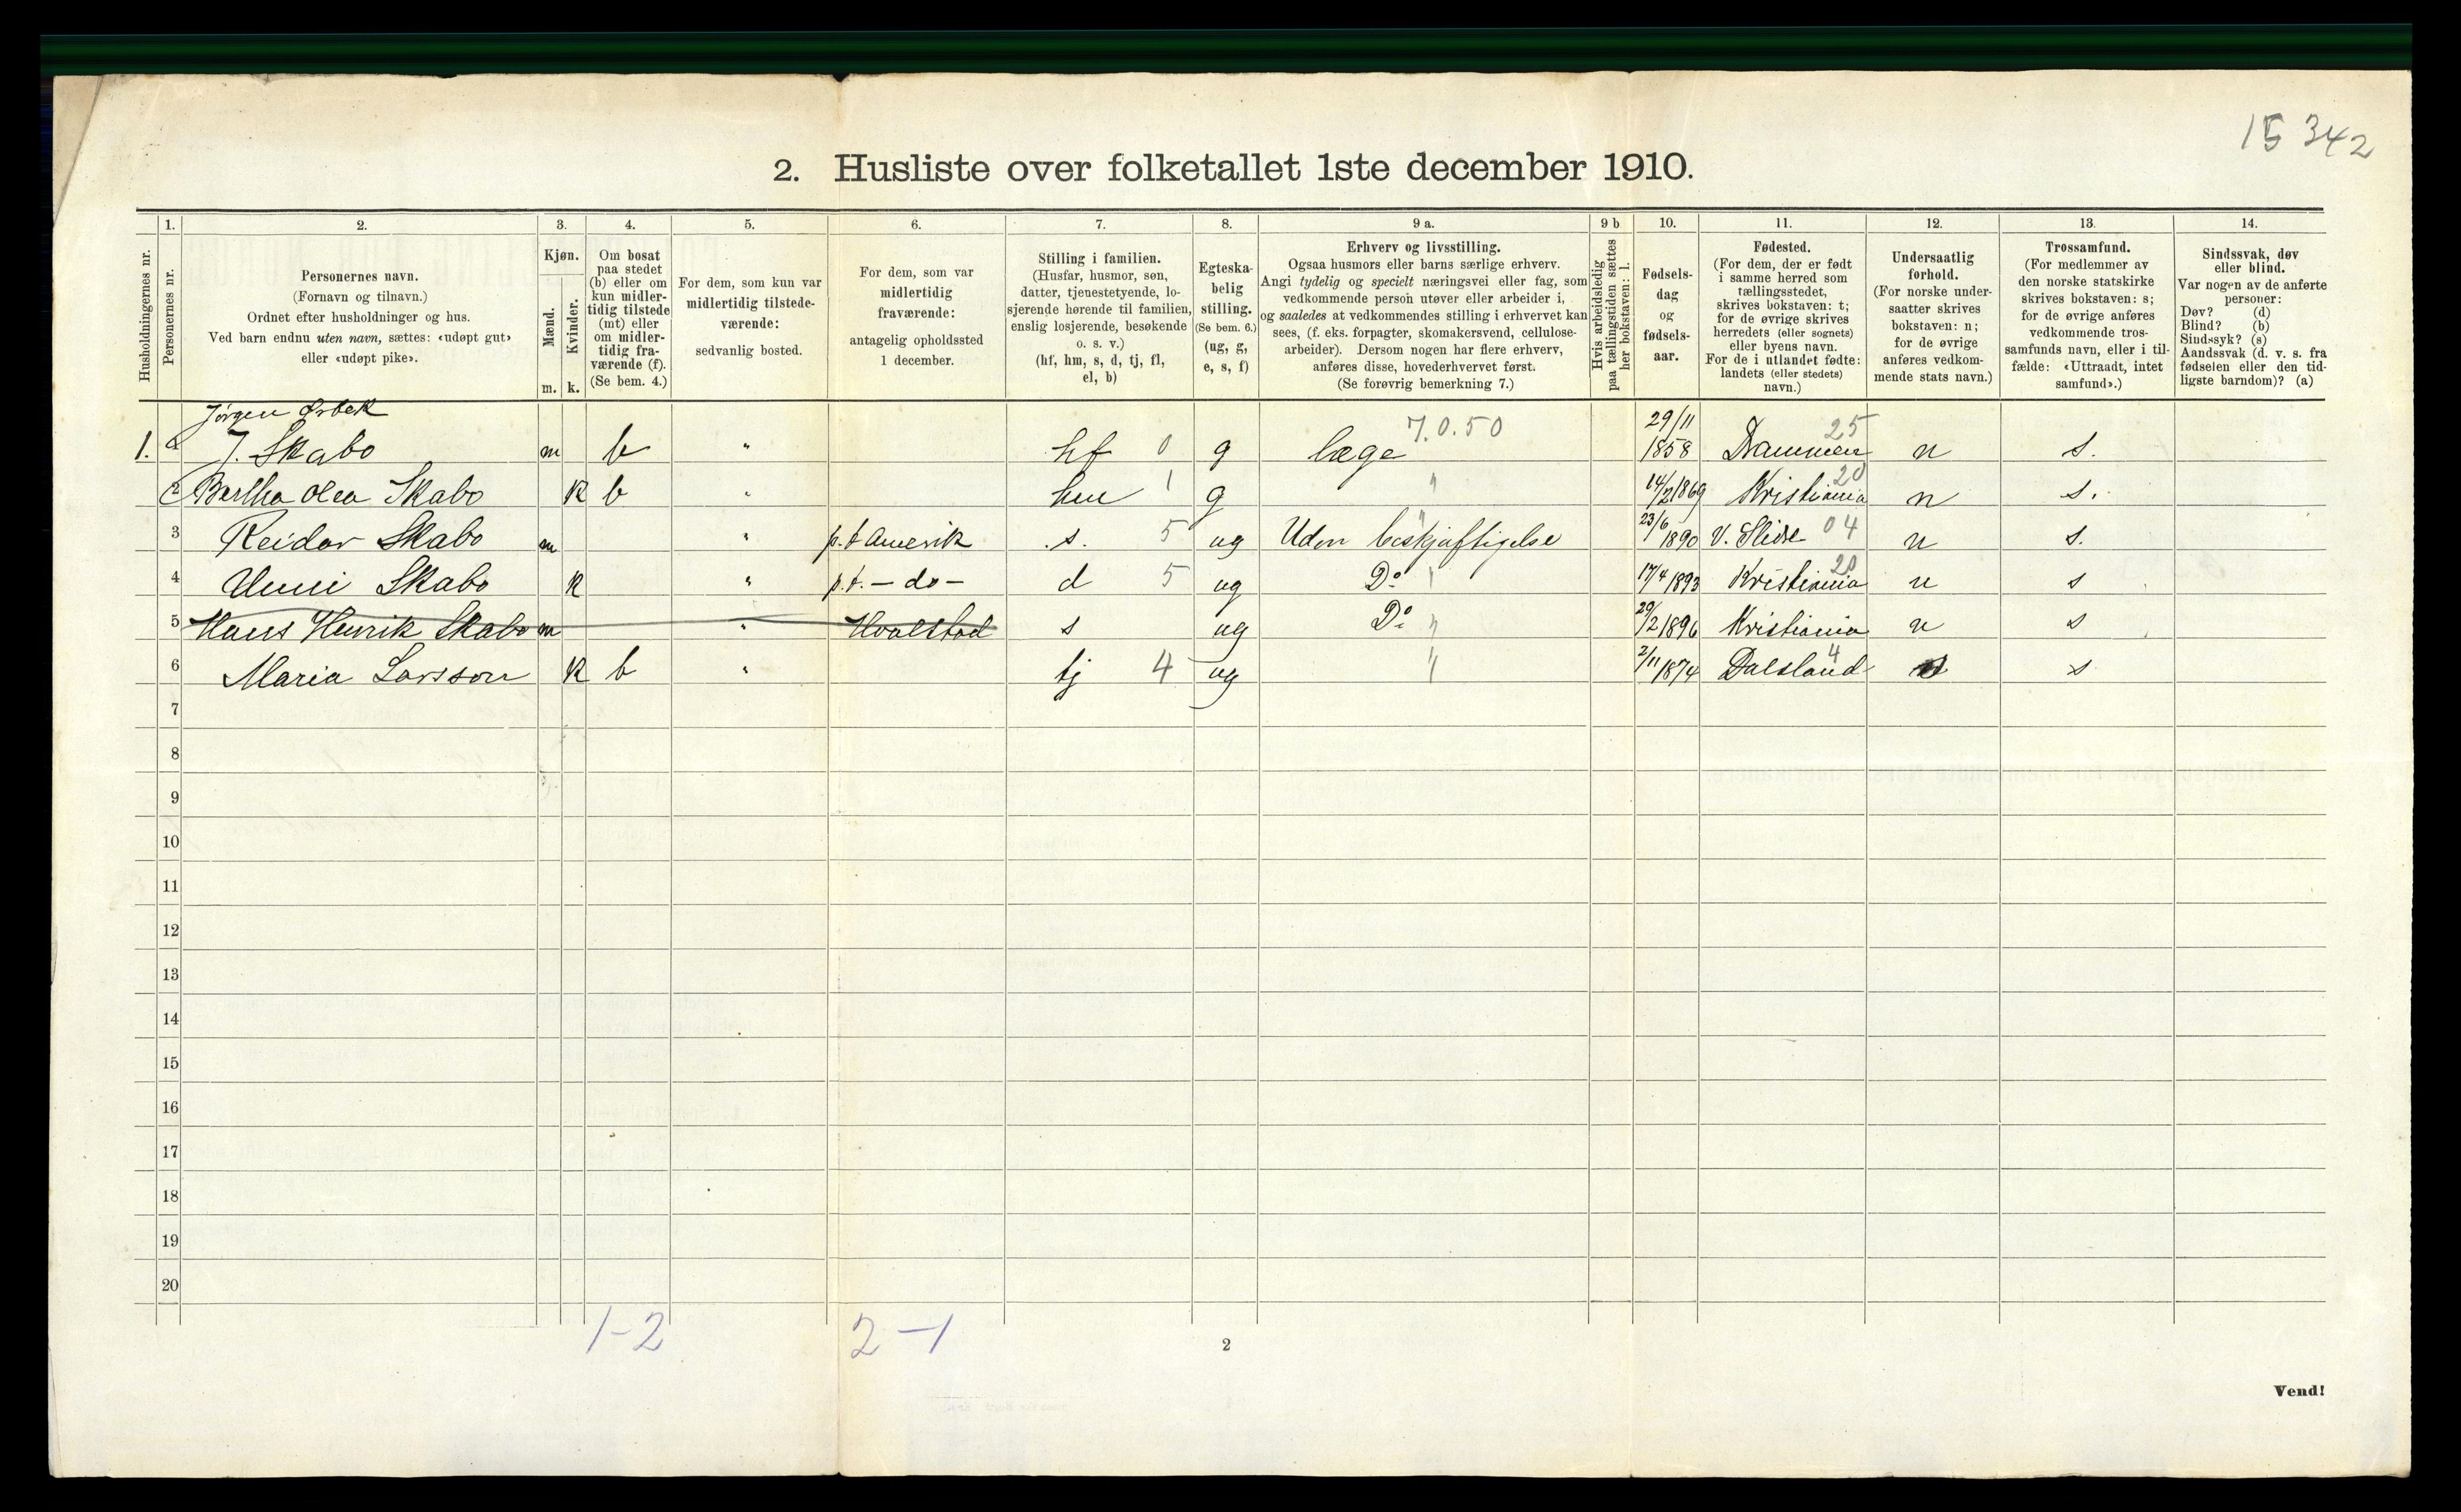 15 342
2. Husliste over folketallet 1ste december 1910.
Husholdningernes nr.
1.
Personernes nr.
2.
Personernes navn.
(Fornavn og tilnavn.)
Ordnet efter husholdninger og hus.
Ved barn endnu uten navn, sættes: «udøpt gut»
eller «udøpt pike».
3.
Kjøn.
Mænd.
m.
Kvinder.
k.
4.
Om bosat
paa stedet
(b) eller om
kun midler-
tidig tilstede
(mt) eller
om midler-
tidig fra-
værende (f).
(Se bem. 4.)
5.
For dem, som kun var
midlertidig tilstede-
værende:
sedvanlig bosted.
6.
For dem, som var
midlertidig
fraværende:
antagelig opholdssted
1 december.
7.
Stilling i familien.
(Husfar, husmor, søn,
datter, tjenestetyende, lo-
sjerende hørende til familien,
enslig losjerende, besøkende
o. s. v.)
(hf, hm, s, d, tj, fl,
el, b)
8.
Egteska-
belig
stilling.
(Se bem. 6.)
(ug, g,
e, s, f)
9 a.
Erhverv og livsstilling.
Ogsaa husmors eller barns særlige erhverv.
Angi tydelig og specielt næringsvei eller fag, som
vedkommende person utøver eller arbeider i,
og saaledes at vedkommendes stilling i erhvervet kan
sees, (f. eks. forpagter, skomakersvend, cellulose-
arbeider). Dersom nogen har flere erhverv,
anføres disse, hovederhvervet først.
(Se forøvrig bemerkning 7.)
9 b
Hvis arbeidsledig
paa tællingstiden sættes
her bokstaven: l.
10.
Fødsels-
dag
og
fødsels-
aar.
11.
Fødested.
(For dem, der er født
i samme herred som
tællingsstedet,
skrives bokstaven: t;
for de øvrige skrives
herredets (eller sognets)
eller byens navn.
For de i utlandet fødte:
landets (eller stedets)
navn.)
12.
Undersaatlig
forhold.
(For norske under-
saatter skrives
bokstaven: n;
for de øvrige
anføres vedkom-
mende stats navn.)
13.
Trossamfund.
(For medlemmer av
den norske statskirke
skrives bokstaven: s;
for de øvrige anføres
vedkommende tros-
samfunds navn, eller i til-
fælde: «Uttraadt, intet
samfund».)
14.
Sindssvak, døv
eller blind.
Var nogen av de anførte
personer:
Døv? (d)
Blind? (b)
Sindssyk? (s)
Aandssvak (d. v. s. fra
fødselen eller den tid-
ligste barndom)? (a)
Jørgen 29/11
1. J. Skabo m b " hf 0 g læge 7.0.50 1858 Drammen 25 n s.
2 Bertha Olea Skabo K b " hm 1 g " 14/2 1869 Kristiania 20 n s.
3 Reidar Skabo m " p.t Amerik s. 5 ug Uden beskjæftigelse " 23/6 1890 V. Slidre 04 n s.
4 Unni Skabo K " p.t. - do - d 5 ug Do " 17/4 1893 Kristiania 20 n s
5 Hans Henrik Skabo m " Hvalstad s ug Do " 29/2 1896 Kristiania n s
6 Maria Larsson K b " tj 4 ug " 2/11 1874 Dalsland 4 s
7
8
9
10
11
12
13
14
15
16
17
18
19
20
1-2 2-1
2
Vend!